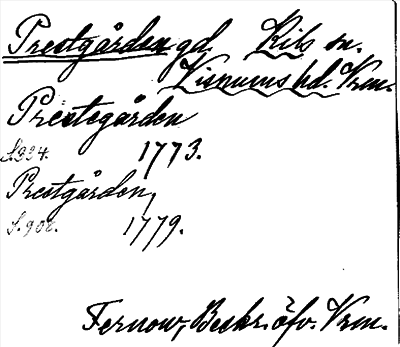 Prestgården gd. Kils sn.
Visnums hd. Vrm.
Prestegården
S. 334. 1773.
Prestgården,
S. 902. 1779.
Fernow, Beskr. öfv. Vrm.